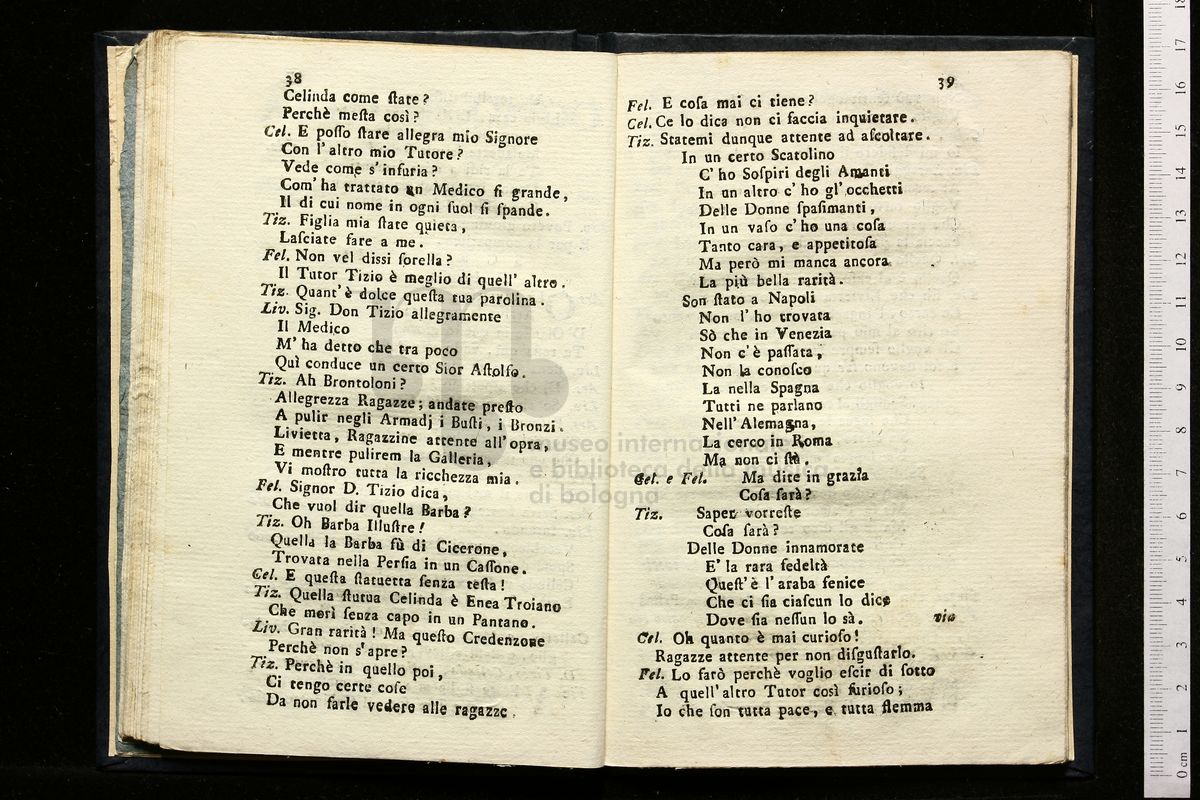 38
Celinda come ſtate?
Perchè meſta così?
Cel. E poſſo ſtare allegra mio Signore
Con l'altro mio Tutore?
Vede come s'infuria?
Com'ha trattato un Medico ſi grande,
Il di cui nome in ogni ſuol ſi ſpande.
Tiz. Figlia mia ſtate quieta,
Laſciate fare a me.
Fel. Non vel dissi ſorella?
Il Tutor Tizio è meglio di quell' altro.
Tiz. Quant'è dolce queſta tua parolina.
Liv. Sig. Don Tizio allegramente
Il Medico
M'ha detto che tra poco
Quì conduce un certo Sior Aſtolfo.
Tiz. Ah Brontoloni?
Allegrezza Ragazze; andate preſto
A pulir negli Armadj i Buſti, i Bronzi.
Livietta, Ragazzine attente all'opra,
E mentre pulirem la Galleria,
Vi moſtro tutta la ricchezza mia.
Fel. Signor D. Tizio dica,
Che vuol dir quella Barba?
Tiz. Oh Barba Illuſtre!
Quella la Barba fù di Cicerone,
Trovata nella Perſia in un Caſſone.
Cel. E queſta ſtatuetta ſenza teſta!
Tiz. Quella ſtutua Celinda è Enea Troiano
Che morì ſenza capo in un Pantano.
Liv. Gran rarità! Ma queſto Credenzone
Perchè non s'apre?
Tiz. Perchè in quello poi,
Ci tengo certe coſe
Da non farle vedere alle ragazze.
39
Fel. E coſa mai ci tiene?
Cel. Ce lo dica non ci faccia inquietare.
Tiz. Statemi dunque attente ad aſcoltare.
In un certo Scatolino
C'ho Soſpiri degli Amanti
In un altro c'ho gl'occhetti
Delle Donne ſpaſimanti,
In un vaſo c'ho una coſa
Tanto cara, e appetitoſa
Ma però mi manca ancora
La più bella rarità.
Son ſtato a Napoli
Non l'ho trovata
Sò che in Venezia
Non c'è paſſata,
Non la conoſco
La nella Spagna
Tutti ne parlano
Nell'Alemagna,
La cerco in Roma
Ma non ci ſtà.
Cel. e Fel. Ma dite in grazia
Coſa ſarà?
Tiz. Saper vorreſte
Coſa ſarà?
Delle Donne innamorate
E' la rara fedeltà
Queſt'è l'araba fenice
Che ci ſia ciaſcun lo dice
Dove ſia neſſun lo sà. via
Cel. Oh quanto è mai curioſo!
Ragazze attente per non diſguſtarlo.
Fel. Lo farò perchè voglio eſcir di ſotto
A quell'altro Tutor così furioſo;
Io che ſon tutta pace, e tutta flemma
museo internazionale
e biblioteca della musica
di bologna
0 cm 1 2 3 4 5 6 7 8 9 10 11 12 13 14 15 16 17 18